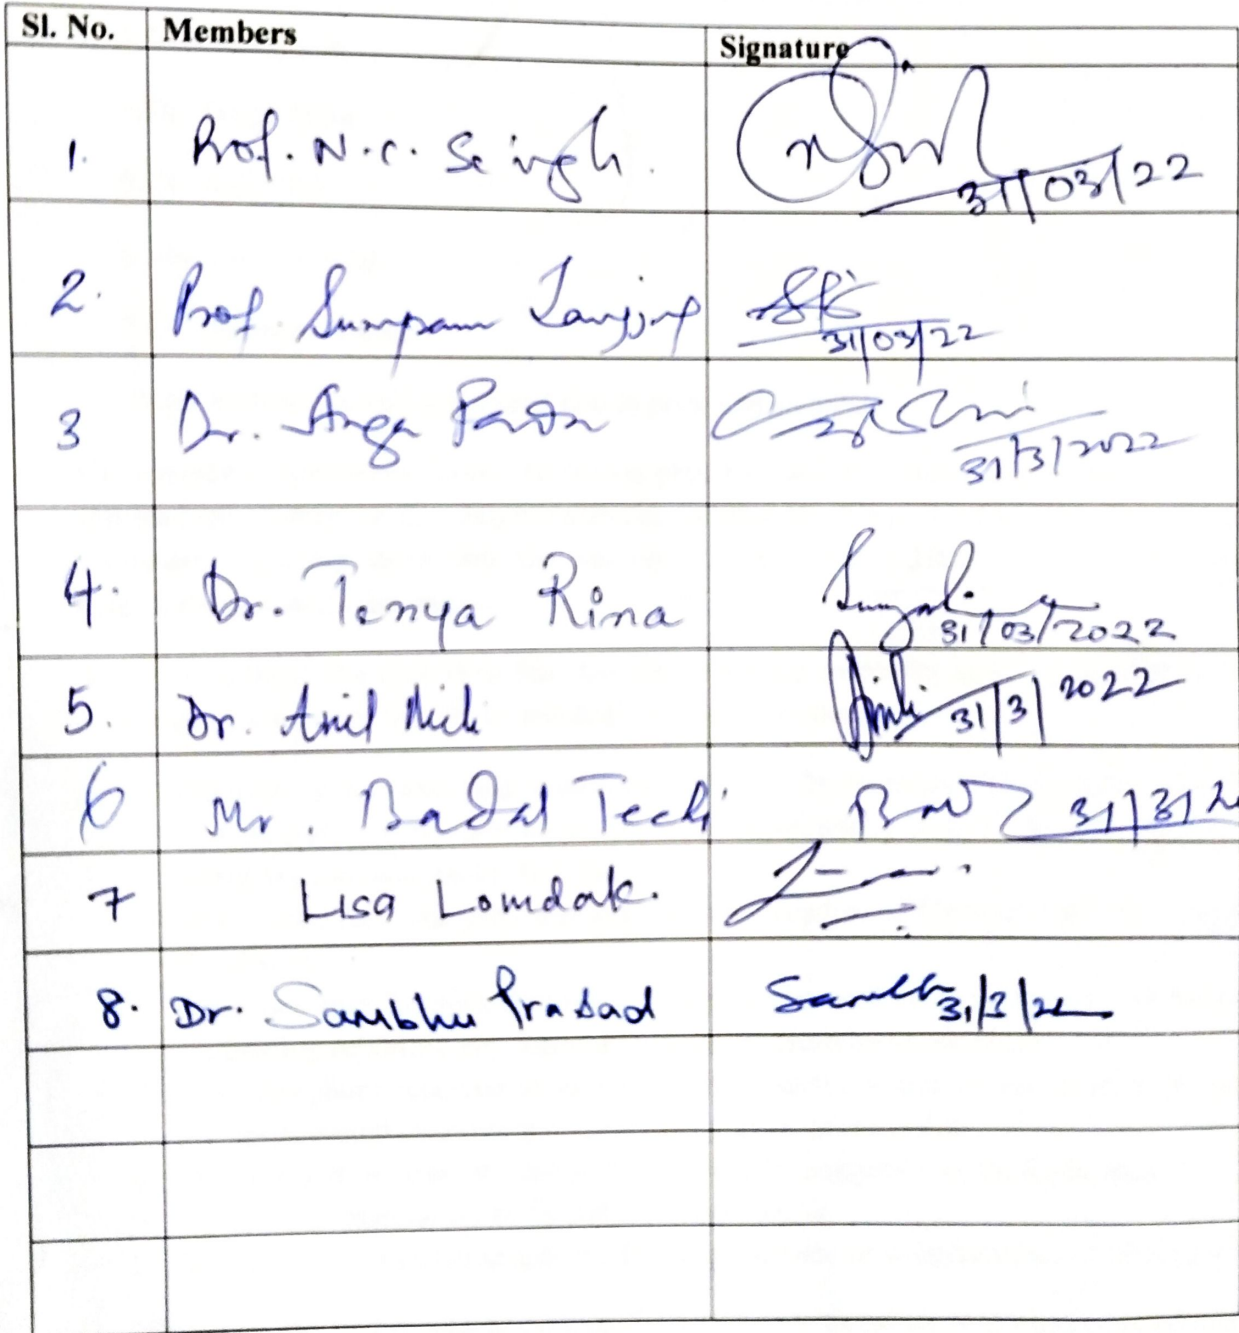 Sl. No. Members Signature
1. Prof. N.C. Singh. 31/03/22
2. Prof Sumpam Tangjang 31/03/22
3 Dr. Anga Padu 31/3/2022
4. Dr. Tenya Rina 31/03/2022
5. Dr. Anil Mili 31/3/2022
6 Mr. Badal Techi 31/3/2
7 Lisa Lomdak.
8. Dr. Sambhu Prasad 31/3/22